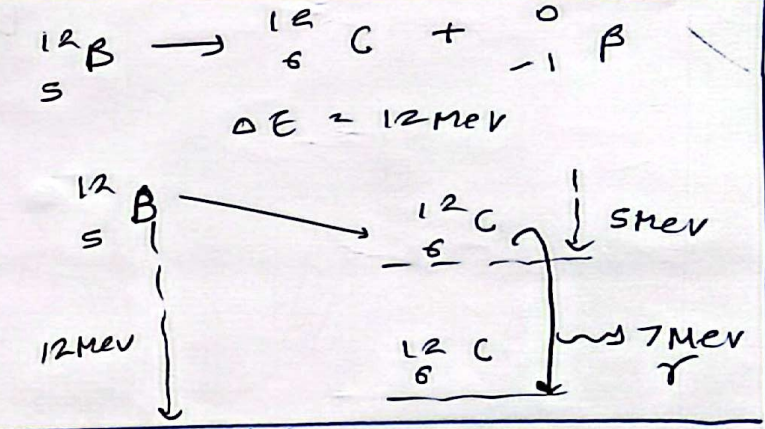 ¹²₅B → ¹²₆C + ⁰₋₁β
ΔE = 12 MeV
¹²₅B → ¹²₆C ↓ 5 MeV
12 MeV ¹²₆C ⇝ 7 MeV
γ